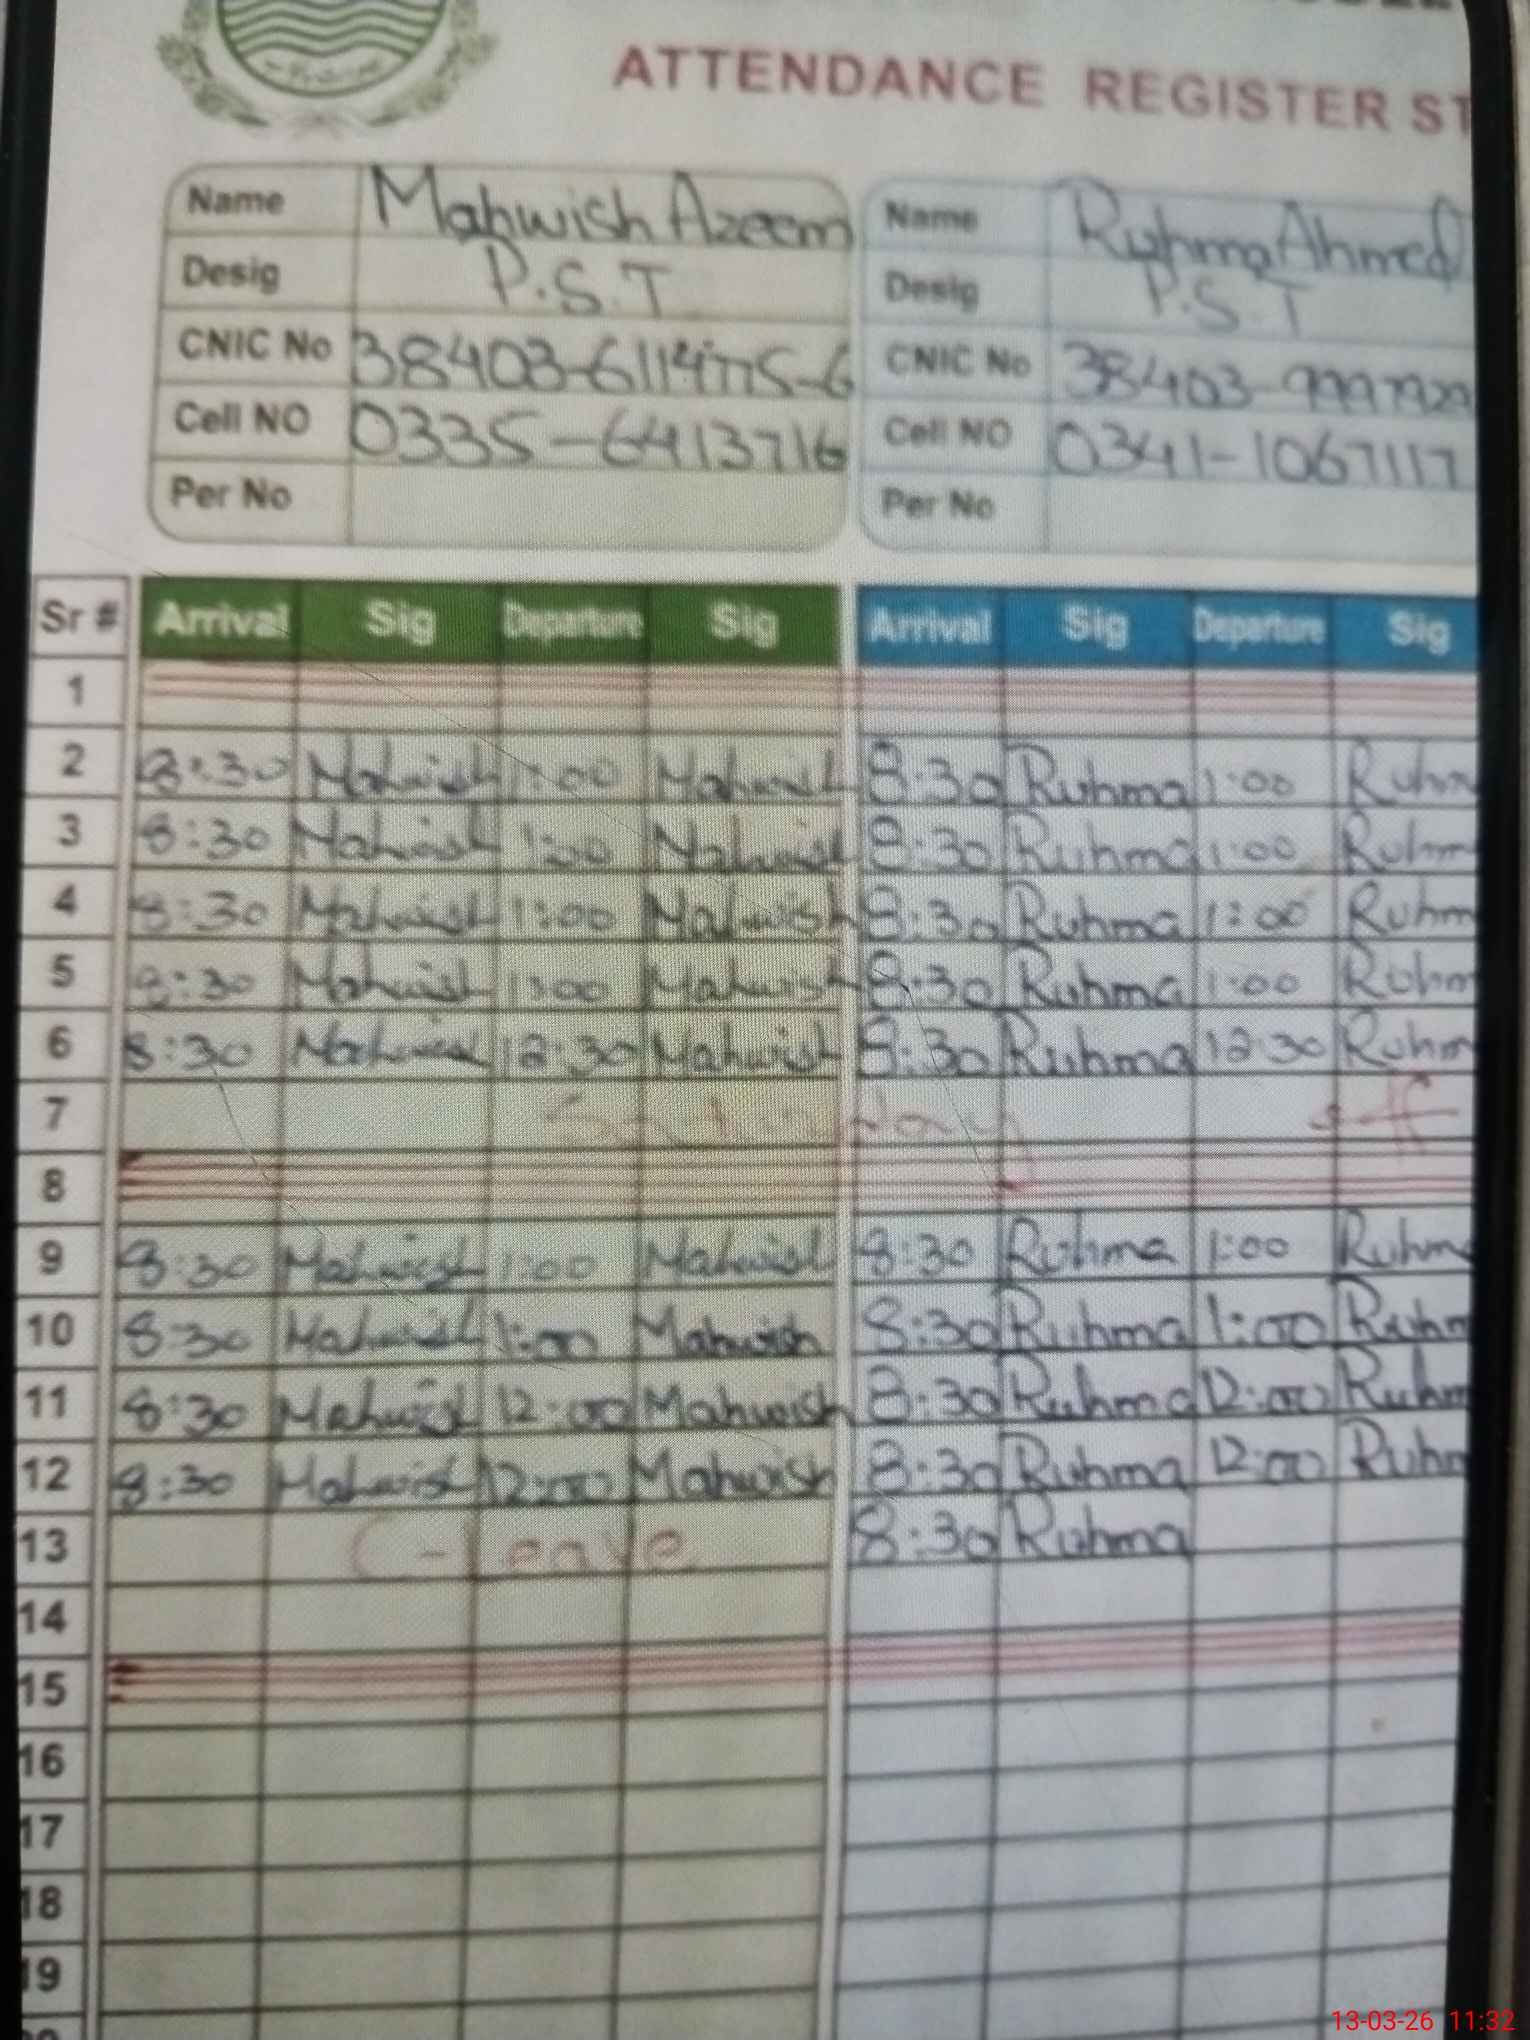 ATTENDANCE REGISTER ST
Name Mahwish Azeem Name Ruhma Ahmed
Desig P.S.T Desig P.S.T
CNIC No 38403-6114775-6 CNIC No 38403-9997929
Cell NO 0335-6413716 Cell NO 0341-1067117
Per No Per No
Sr # Arrival Sig Departure Sig Arrival Sig Departure Sig
1
2 8:30 Mahwish 1:00 Mahwish 8:30 Ruhma 1:00 Ruhm
3 8:30 Mahwish 1:00 Mahwish 8:30 Ruhma 1:00 Ruhm
4 8:30 Mahwish 1:00 Mahwish 8:30 Ruhma 1:00 Ruhm
5 8:30 Mahwish 1:00 Mahwish 8:30 Ruhma 1:00 Ruhm
6 8:30 Mahwish 12:30 Mahwish 8:30 Ruhma 12:30 Ruhm
7 Saturday off
8
9 8:30 Mahwish 1:00 Mahwish 8:30 Ruhma 1:00 Ruhm
10 8:30 Mahwish 1:00 Mahwish 8:30 Ruhma 1:00 Ruhm
11 8:30 Mahwish 12:00 Mahwish 8:30 Ruhma 12:00 Ruhm
12 8:30 Mahwish 12:00 Mahwish 8:30 Ruhma 12:00 Ruhm
13 C-Leave 8:30 Ruhma
14
15
16
17
18
19
13-03-26 11:32